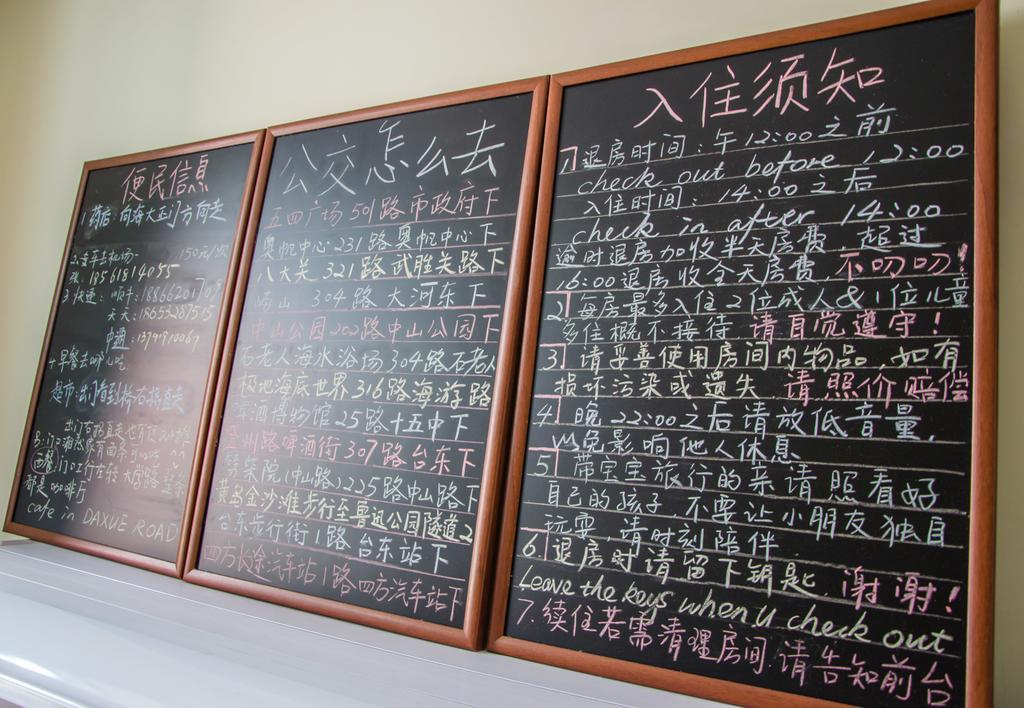 便民信息
1 药店 向海大正门方向走
2. 坐车去机场 150元/次
张. 18561814055
3 快递: 顺丰: 18866201709
天天: 18653287515
中通: 13791910067
4 早餐去哪儿吃
超市: 出门看到桥右拐直走
出门右拐直走也有
都是咖啡厅
cafe in DAXUE ROAD
公交怎么去
五四广场 501路 市政府下
奥帆中心 231路 奥帆中心下
八大关 321路 武胜关路下
崂山 304路 大河东下
中山公园 202路 中山公园下
石老人海水浴场 304路 石老人
极地海底世界 316路 海游路
啤酒博物馆 25路 十五中下
登州路啤酒街 307路 台东下
劈柴院(中山路) 225路 中山路下
黄岛金沙滩 步行至鲁迅公园 隧道2
台东步行街 1路 台东站下
四方长途汽车站 1路 四方汽车站下
入住须知
1. 退房时间: 午12:00之前
check out before 12:00
入住时间: 14:00之后
check in after 14:00
逾时退房加收半天房费. 超过
16:00退房收全天房费 不叨叨!
2. 每房最多入住2位成人&1位儿童
多住概不接待 请自觉遵守!
3. 请妥善使用房间内物品, 如有
损坏污染或遗失 请照价赔偿
4. 晚22:00之后请放低音量,
以免影响他人休息
5. 带宝宝旅行的亲请照看好
自己的孩子, 不要让小朋友独自
玩耍, 请时刻陪伴
6. 退房时请留下钥匙, 谢谢!
Leave the keys when u check out
7. 续住若需清理房间, 请告知前台